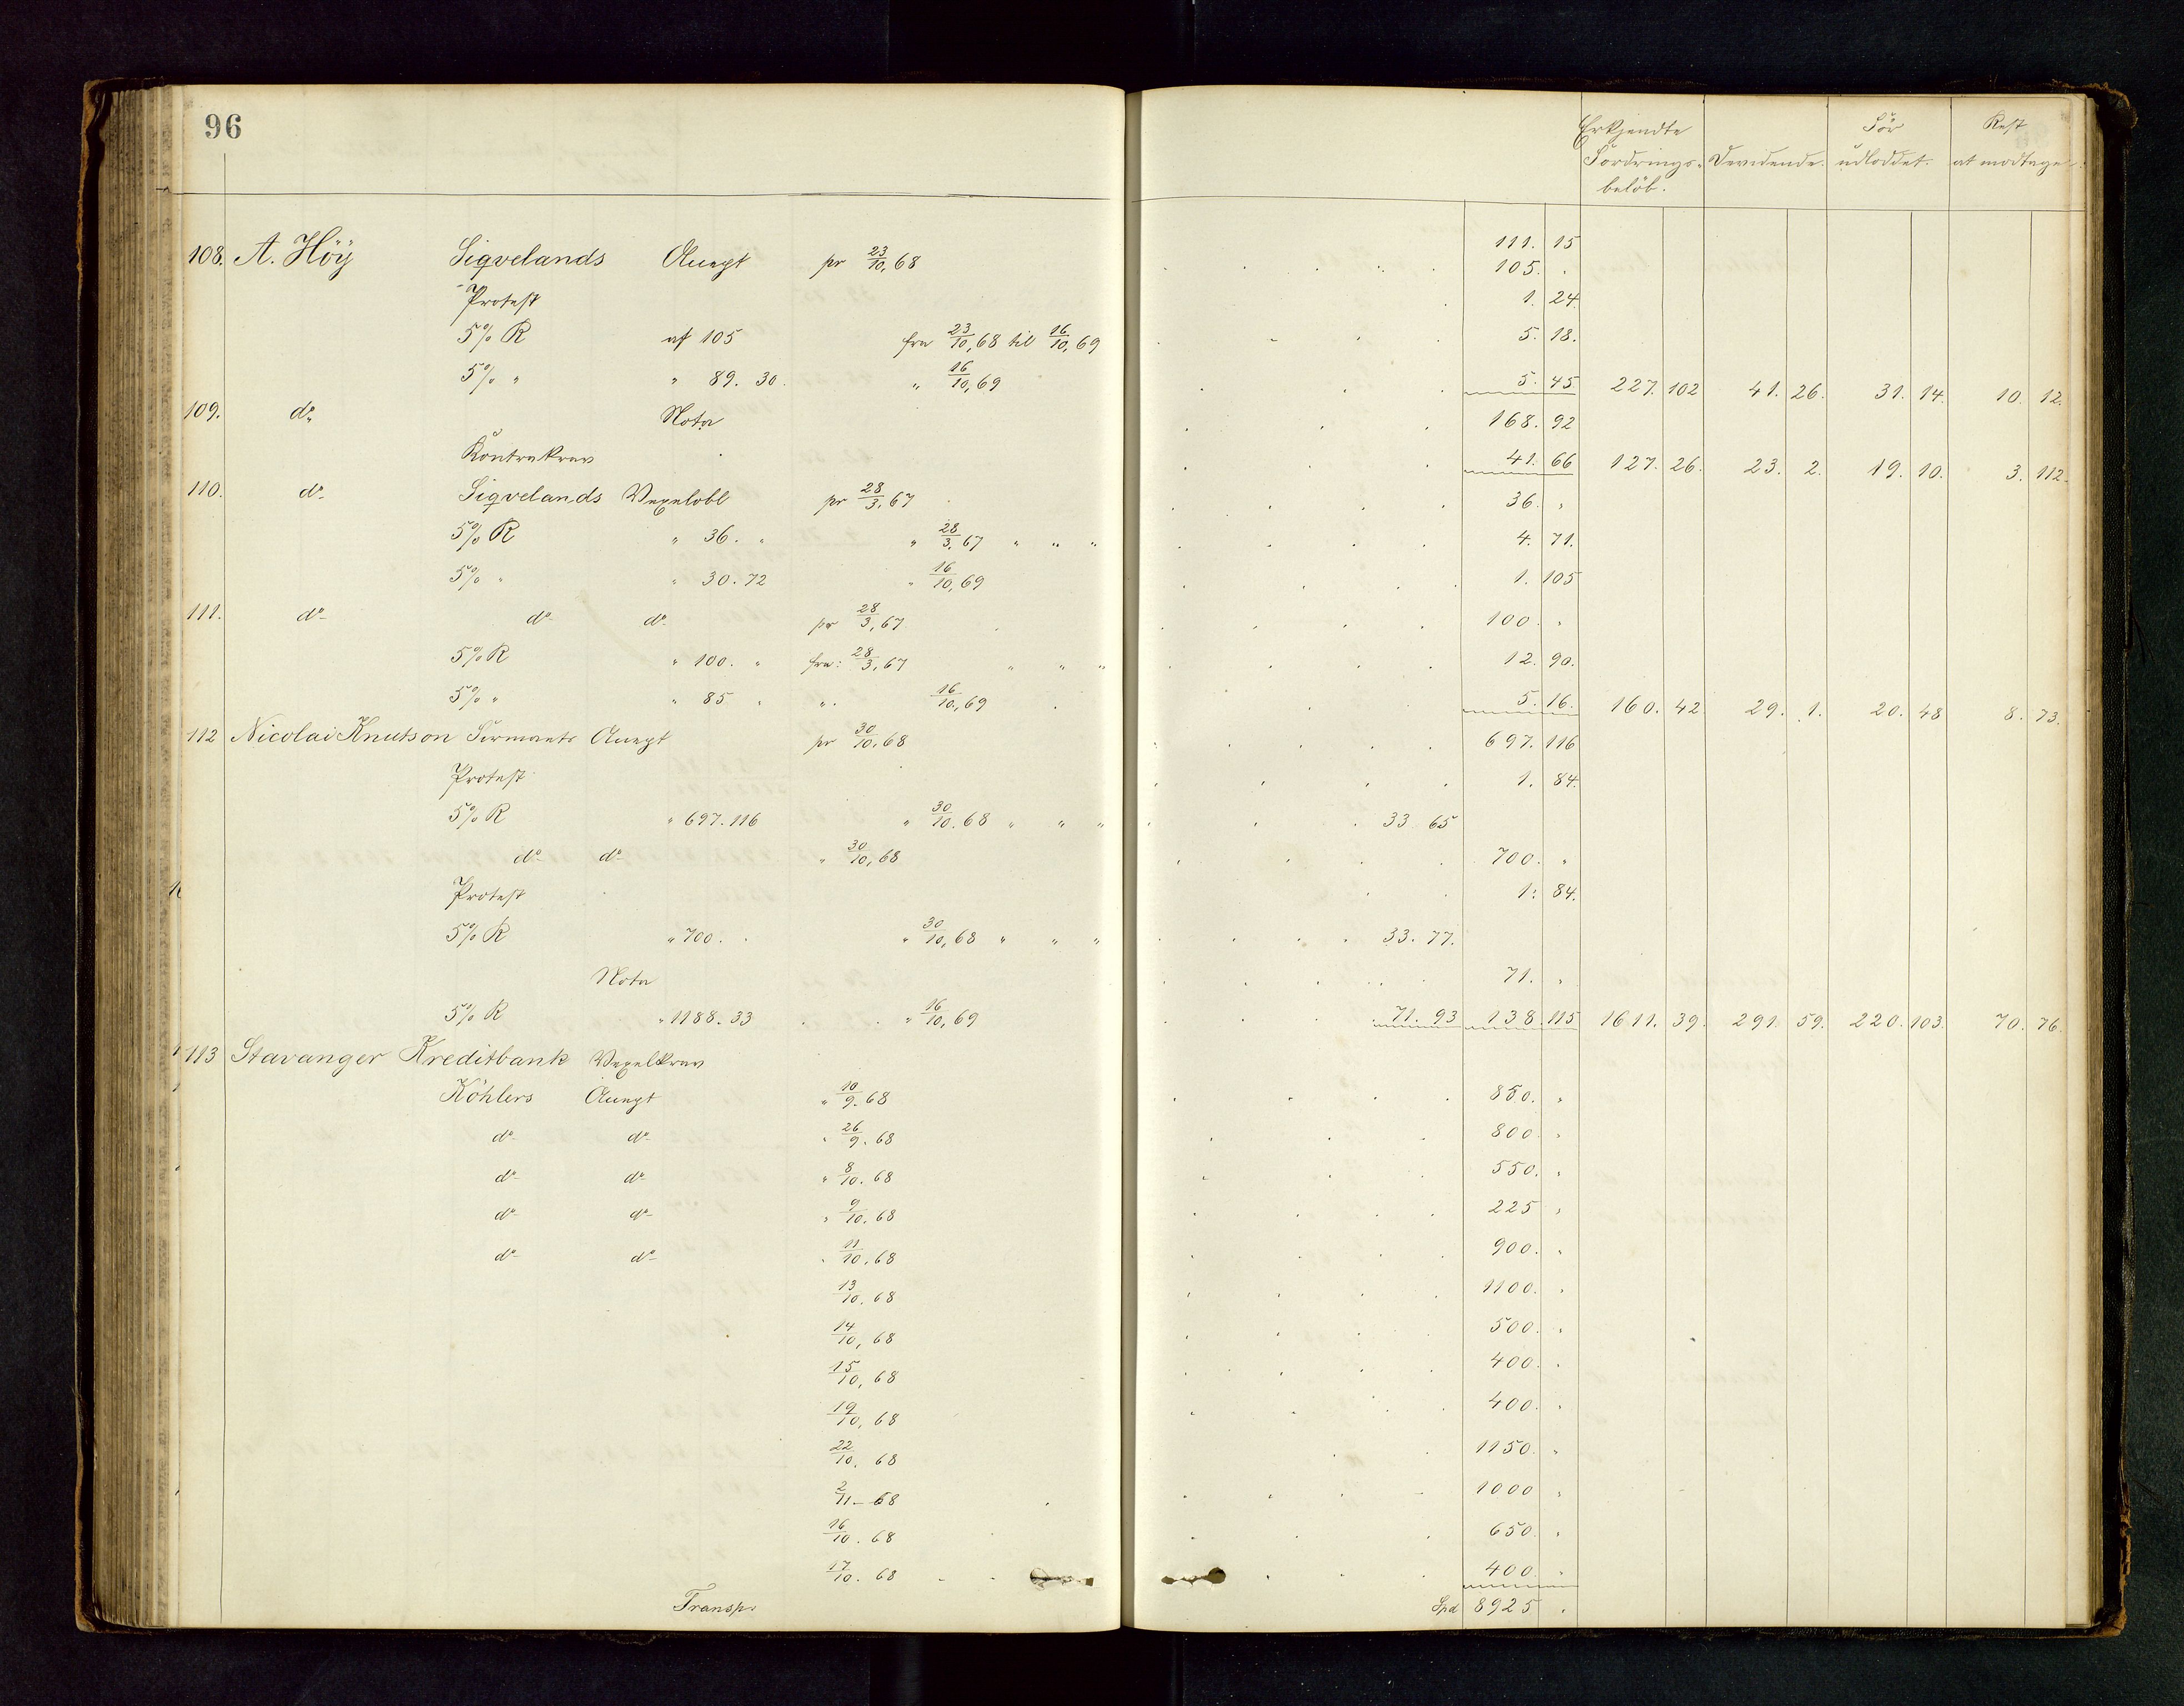 96
Erkjendte Fordrings- beløb. Devidende. Før udloddet. Rest at modtage.
111. 15
108. A. Höy Sigvelands Accept pr 23/10,68 105. "
Protest 1. 24
5% R af 105 fra 23/10,68 til 16/10,69 5. 18.
5% " " 89. 30. " 16/10,69 5. 45 227. 102 41. 26. 31. 14. 10. 12.
109. do Nota 168. 92
Kontrakrav 41. 66 127. 26. 23. 2. 19. 10. 3. 112.
110. do Sigvelands Vexelobl pr 28/3,67 36. "
5% R " 36. " " 28/3,67 " " " 4. 71.
5% " " 30. 72 " 16/10,69 1. 105
111. do do do pr 28/3,67 100. "
5% R " 100. " fra: 28/3,67 " " " 12. 90.
5% " " 85 " " 16/10,69 5. 16. 160. 42 29. 1. 20. 48 8. 73.
112 Nicolai Knutson Firmaets Accept pr 30/10,68 697. 116
Protest 1. 84.
5% R " 697. 116 " 30/10.68 " " " 33 65
do do " 30/10,68 700. "
Protest 1. 84.
5% R " 700. " " 30/10,68 " " " 33. 77.
Nota 71. "
5% R " 1188. 33 " 16/10,69 71. 93 138. 115 1611. 39. 291. 59. 220. 103. 70. 76.
113 Stavanger Kreditbank Vexelkrav
Köhlers Accept " 10/9.68 850. "
do do " 26/9.68 800. "
do do " 8/10.68 550. "
do do " 9/10.68 225 "
do do " 11/10.68 900. "
13/10.68 1100. "
14/10,68 500. "
15/10,68 400. "
19/10,68 400. "
22/10.68 1150. "
2/11-68 1000 "
16/10.68 650. "
17/10.68 400. "
Transp. Spd 8925 "